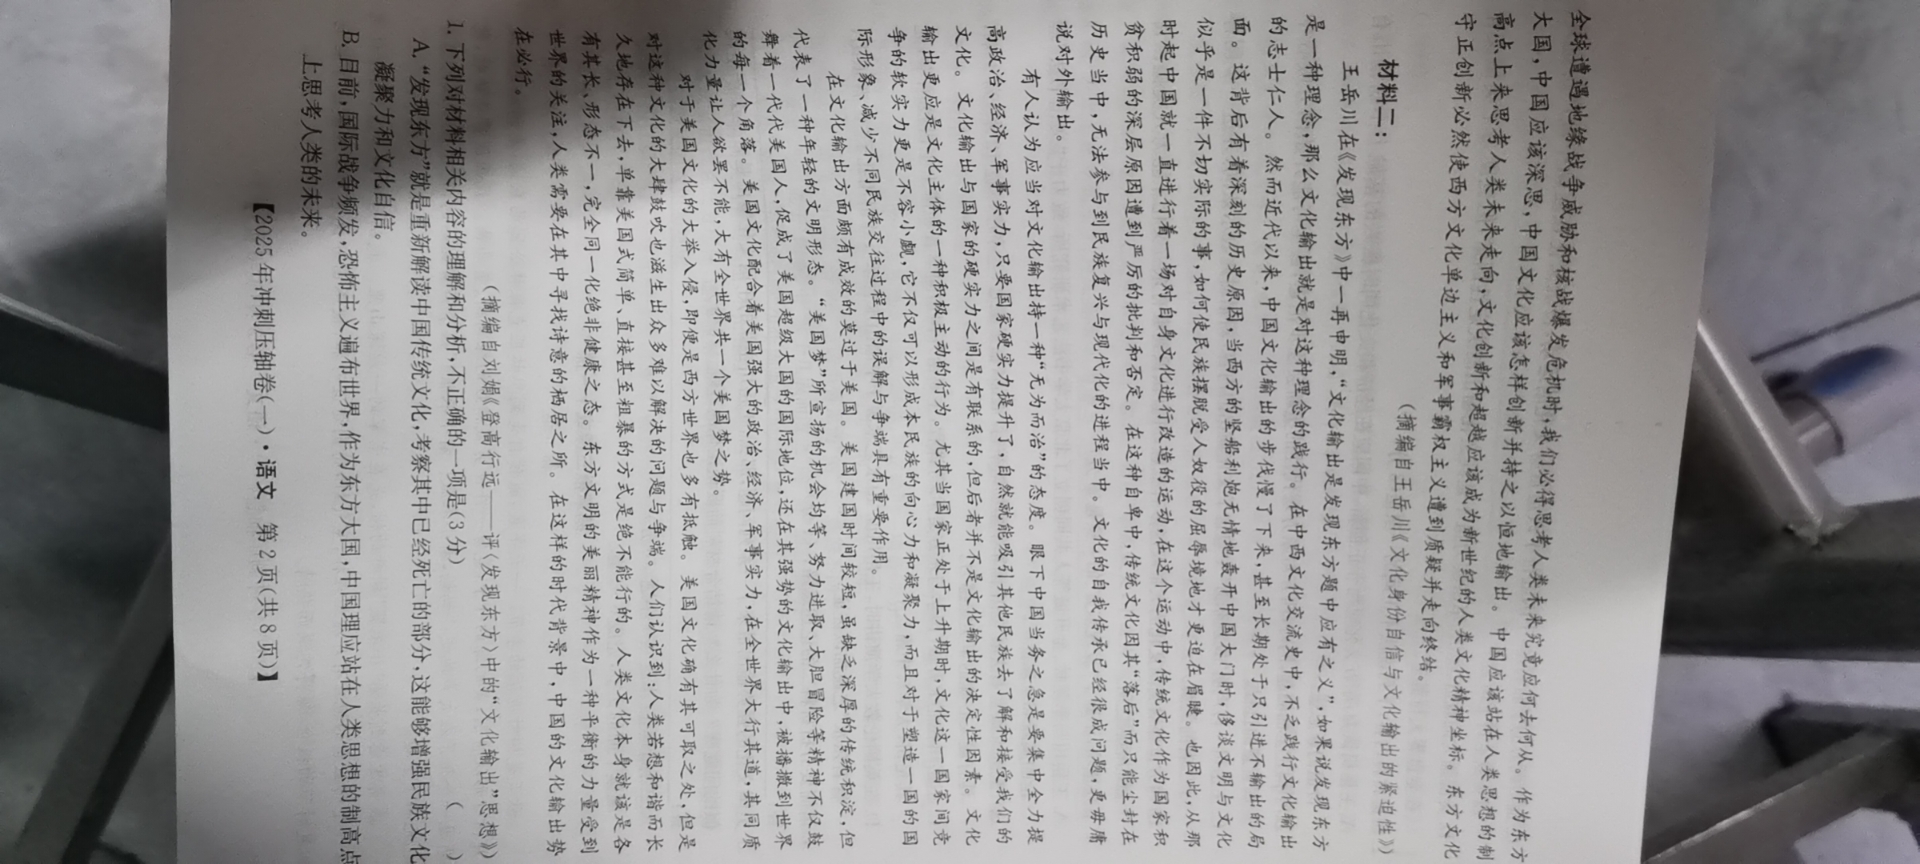 全球遭遇地缘战争威胁和核战爆发危机时,我们必得思考人类未来究竟应何去何从。作为东方
大国,中国应该深思,中国文化应该怎样创新并持之以恒地输出。中国应该站在人类思想的制
高点上来思考人类未来走向,文化创新和超越应该成为新世纪的人类文化精神坐标。东方文化
守正创新必然使西方文化单边主义和军事霸权主义遭到质疑并走向终结。
(摘编自王岳川《文化身份自信与文化输出的紧迫性》)
材料二:
王岳川在《发现东方》中一再申明,“文化输出是发现东方题中应有之义”,如果说发现东方
是一种理念,那么文化输出就是对这种理念的践行。在中西文化交流史中,不乏践行文化输出
的志士仁人。然而近代以来,中国文化输出的步伐慢了下来,甚至长期处于只引进不输出的局
面。这背后有着深刻的历史原因,当西方的坚船利炮无情地轰开中国大门时,侈谈文明与文化
似乎是一件不切实际的事,如何使民族摆脱受人奴役的屈辱境地才更迫在眉睫。也因此,从那
时起中国就一直进行着一场对自身文化进行改造的运动,在这个运动中,传统文化作为国家积
贫积弱的深层原因遭到严厉的批判和否定。在这种自卑中,传统文化因其“落后”而只能尘封在
历史当中,无法参与到民族复兴与现代化的进程当中。文化的自我传承已经很成问题,更毋庸
说对外输出。
有人认为应当对文化输出持一种“无为而治”的态度。眼下中国当务之急是要集中全力提
高政治、经济、军事实力,只要国家硬实力提升了,自然就能吸引其他民族去了解和接受我们的
文化。文化输出与国家的硬实力之间是有联系的,但后者并不是文化输出的决定性因素。文化
输出更应是文化主体的一种积极主动的行为。尤其当国家正处于上升期时,文化这一国家间竞
争的软实力更是不容小觑,它不仅可以形成本民族的向心力和凝聚力,而且对于塑造一国的国
际形象、减少不同民族交往过程中的误解与争端具有重要作用。
在文化输出方面颇有成效的莫过于美国。美国建国时间较短,虽缺乏深厚的传统积淀,但
代表了一种年轻的文明形态。“美国梦”所宣扬的机会均等、努力进取、大胆冒险等精神不仅鼓
舞着一代代美国人,促成了美国超级大国的国际地位,还在其强势的文化输出中,被播撒到世界
的每一个角落。美国文化配合着美国强大的政治、经济、军事实力,在全世界大行其道,其同质
化力量让人欲罢不能,大有全世界共一个美国梦之势。
对于美国文化的大举入侵,即便是西方世界也多有抵触。美国文化确有其可取之处,但是
对这种文化的大肆鼓吹也滋生出众多难以解决的问题与争端。人们认识到:人类若想和谐而长
久地存在下去,单靠美国式简单、直接甚至粗暴的方式是绝不能行的。人类文化本身就该是各
有其长、形态不一,完全同一化绝非健康之态。东方文明的美丽精神作为一种平衡的力量受到
世界的关注,人类需要在其中寻找诗意的栖居之所。在这样的时代背景中,中国的文化输出势
在必行。
(摘编自刘娟《登高行远——评〈发现东方〉中的“文化输出”思想》)
1. 下列对材料相关内容的理解和分析,不正确的一项是(3分) ( )
A.“发现东方”就是重新解读中国传统文化,考察其中已经死亡的部分,这能够增强民族文化
凝聚力和文化自信。
B.目前,国际战争频发,恐怖主义遍布世界,作为东方大国,中国理应站在人类思想的制高点
上思考人类的未来。
【2025年冲刺压轴卷(一)·语文 第2页(共8页)】